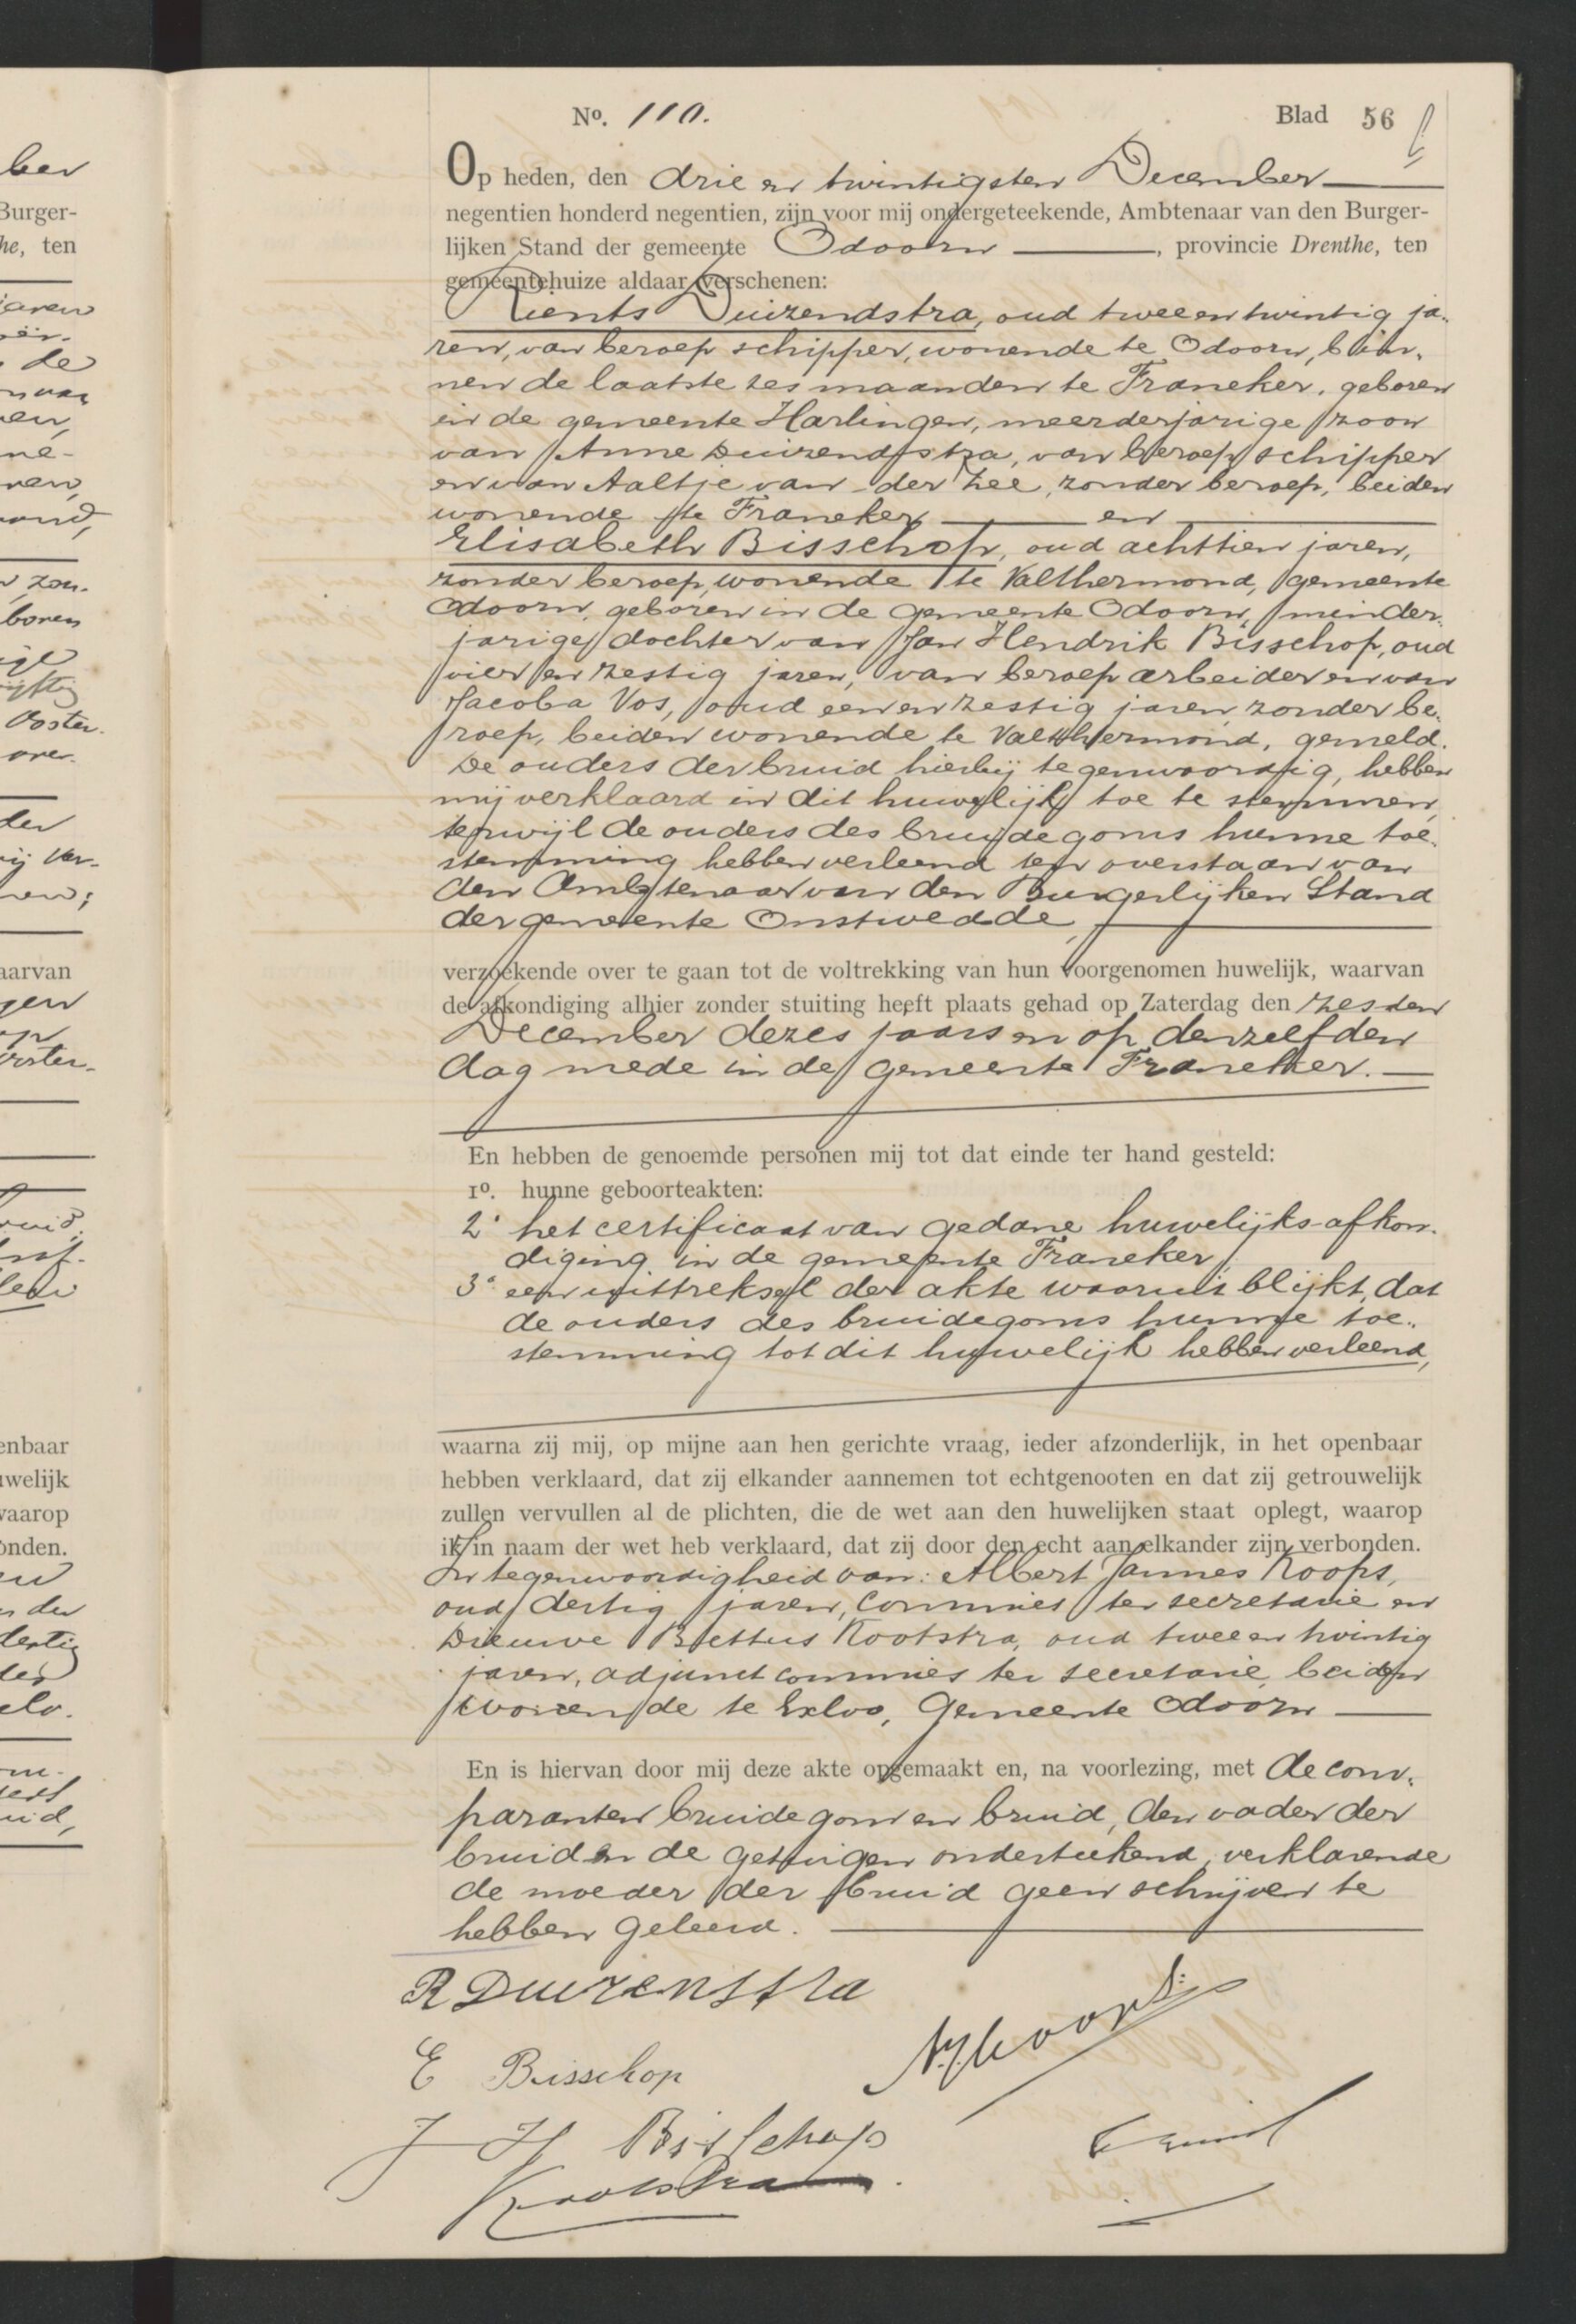 No. 110.
Blad 56
Op heden, den drie en twintigsten December
negentien honderd negentien, zijn voor mij ondergeteekende, Ambtenaar van den Burger-
lijken Stand der gemeente Odoorn, provincie Drenthe, ten
gemeentehuize aldaar verschenen:
Rients Duizendstra, oud twee en twintig ja-
ren, van beroep schipper, wonende te Odoorn, bin-
nen de laatste zes maanden te Franeker, geboren
in de gemeente Harlingen, meerderjarige zoon
van Anne Duizendstra, van beroep schipper
en van Aaltje van der Zee, zonder beroep, beiden
wonende te Franeker en
Elisabeth Bisschop, oud achttien jaren,
zonder beroep, wonende te Valthermond, gemeente
Odoorn, geboren in de gemeente Odoorn, minder-
jarige dochter van Jan Hendrik Bisschop, oud
vier en zestig jaren, van beroep arbeider en van
Jacoba Vos, oud een en zestig jaren, zonder be-
roep, beiden wonende te Valthermond, gemeld.
De ouders der bruid hierbij tegenwoordig, hebben
mij verklaard in dit huwelijk toe te stemmen,
terwijl de ouders des bruidegoms hunne toe-
stemming hebben verleend ten overstaan van
den Ambtenaar van den Burgerlijken Stand
der gemeente Onstwedde,
verzoekende over te gaan tot de voltrekking van hun voorgenomen huwelijk, waarvan
de afkondiging alhier zonder stuiting heeft plaats gehad op Zaterdag den zesden
December dezes jaars en op denzelfden
dag mede in de gemeente Franeker.
En hebben de genoemde personen mij tot dat einde ter hand gesteld:
1o. hunne geboorteakten:
2o het certificaat van gedane huwelijks-afkon-
diging in de gemeente Franeker,
3o een uittreksel der akte waaruit blijkt, dat
de ouders des bruidegoms hunne toe-
stemming tot dit huwelijk hebben verleend,
waarna zij mij, op mijne aan hen gerichte vraag, ieder afzonderlijk, in het openbaar
hebben verklaard, dat zij elkander aannemen tot echtgenooten en dat zij getrouwelijk
zullen vervullen al de plichten, die de wet aan den huwelijken staat oplegt, waarop
ik in naam der wet heb verklaard, dat zij door den echt aan elkander zijn verbonden.
In tegenwoordigheid van: Albert Jannes Koops,
oud dertig jaren, commies ter secretarie en
Dieuwe Bettus Kootstra, oud twee en twintig
jaren, adjunct commies ter secretarie, beiden
wonende te Exloo, Gemeente Odoorn
En is hiervan door mij deze akte opgemaakt en, na voorlezing, met de com-
paranten bruidegom en bruid, den vader der
bruid en de getuigen onderteekend, verklarende
de moeder der bruid geen schrijven te
hebben geleerd.
R Duizenstra
AJKoops
E Bisschop
J H Bisschop
Kootstra